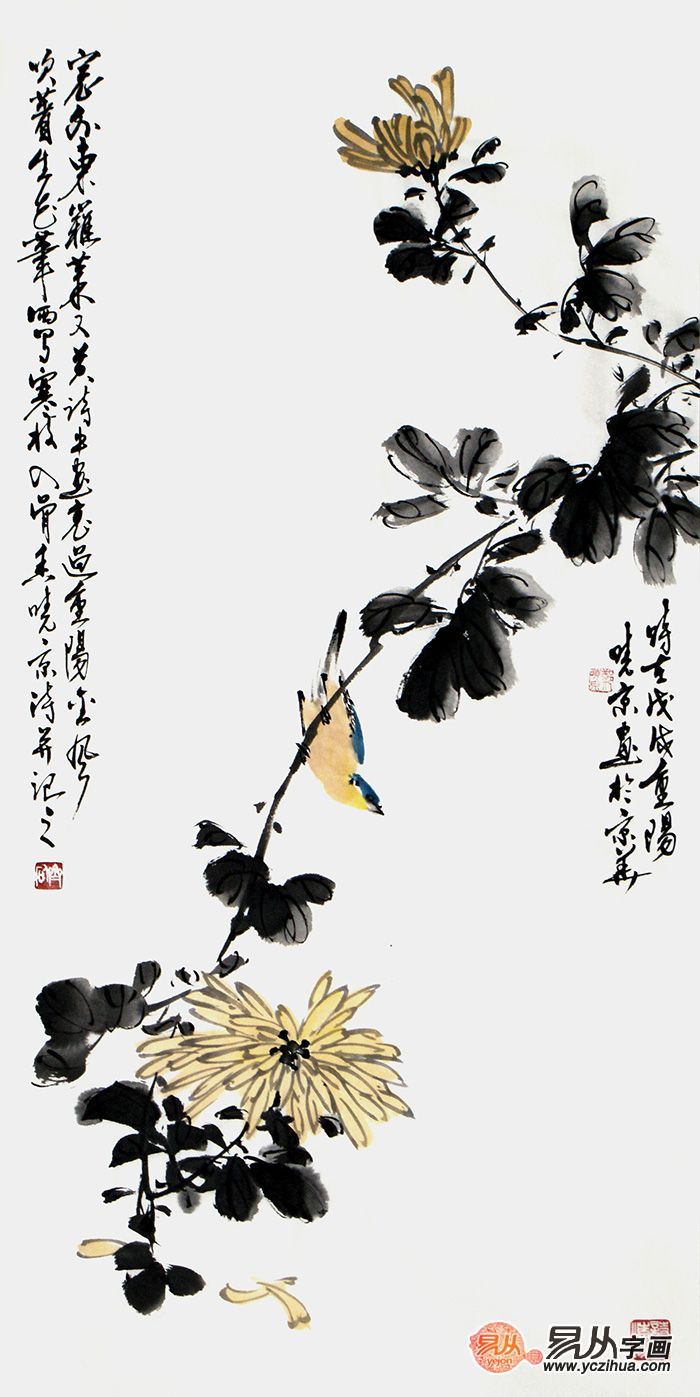 時在戊戌重陽
曉京畫於京華
窓外東籬菊又黄詩書畫意過重陽金風
吹着生花筆洒写寒枝入骨香曉京詩并記之
易从
易从字画
www.yczihua.com